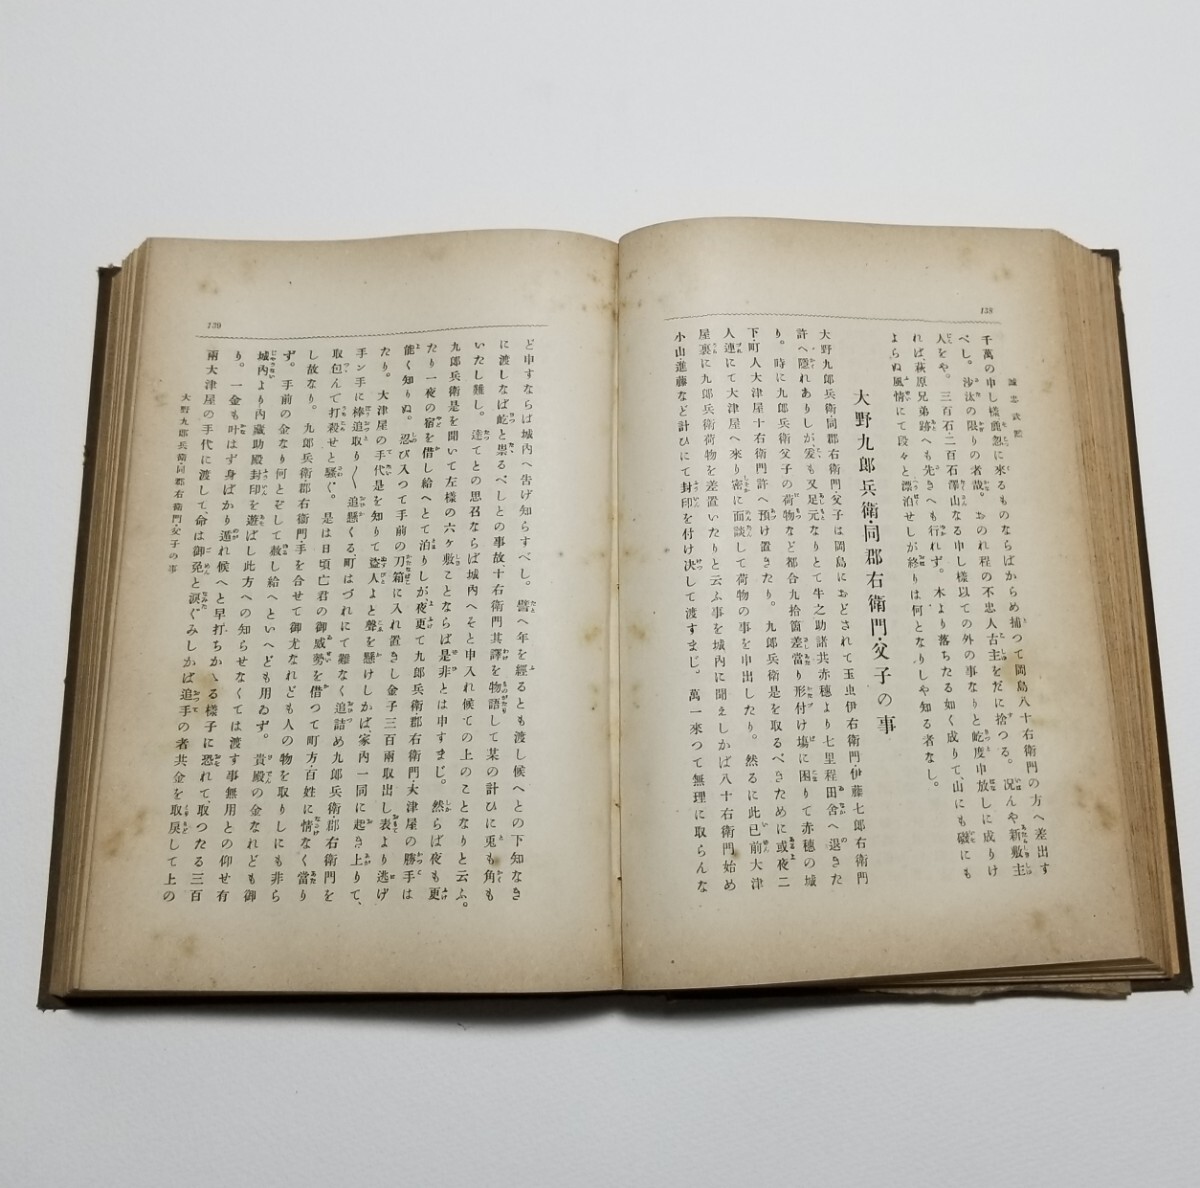 138
誠忠武鑑
千萬の申し樣麁忽に來るものならばからめ捕つて岡島八十右衛門の方へ差出す
べし。沙汰の限りの者哉。おのれ程の不忠人古主をだに捨つる。況んや新敷主
人をや。三百石・二百石澤山なる申し樣以ての外の事なりと屹度申放しに成りけ
れば、萩原兄弟跡へも先きへも行れず。木より落ちたる如く成りて、山にも磯にも
よらぬ風情にて段々と漂泊せしが終りは何となりしや知る者なし。
大野九郎兵衛・同郡右衛門・父子の事
大野九郎兵衛・同郡右衛門・父子は岡島におどされて玉虫伊右衛門・伊藤七郎右衛門
許へ隱れありしが、爰も又足元なりとて牛之助諸共赤穗より七里程田舍へ退きた
り。時に九郎兵衛父子の荷物など都合九拾箇差當り形付け塲に困りて赤穗の城
下・町人大津屋十右衛門許へ預け置きたり。九郎兵衛是を取るべきために或夜二
人連にて大津屋へ來り密に面談して荷物の事を申出したり。然るに此已前大津
屋裏に九郎兵衛荷物を差置いたりと云ふ事を城內に聞えしかば八十右衛門始め
小山・進藤など計ひにて封印を付け決して渡すまじ。萬一來つて無理に取らんな
139
ど申すならば城內へ告げ知らすべし。譬へ年を經るとも渡し候へとの下知なき
に渡しなば屹と祟るべしとの事故、十右衛門其譯を物語して某の計ひに兎も角も
いたし難し。達てとの思召ならば城內へそと申入れ候ての上のことなりと云ふ。
九郎兵衛是を聞いて左樣の六ヶ敷ことならば是非とは申すまじ。然らば夜も更
たり一夜の宿を借し給へとて泊りしが、夜更て九郎兵衛郡右衛門・大津屋の勝手は
能く知りぬ。忍び入つて手前の刀箱に入れ置きし金子三百兩取出し表より逃げ
たり。大津屋の手代是を知りて盜人よと聲を懸けしかば、家內一同に起き上りて、
手ン手に棒追取り〳〵追懸くる、町はづれにて難なく追詰め九郎兵衛・郡右衛門を
取包んで打殺せと騷ぐ。是は日頃亡君の御威勢を借つて町方・百姓に情なく當り
し故なり。九郎兵衛・郡右衛門・手を合せて御尤なれども人の物を取りしにも非ら
ず。手前の金なり何とぞして赦し給へといへども用ゐず。貴殿の金なれども御
城內より內藏助殿封印を遊ばし此方への知らせなくては渡す事無用との仰せ有
り。一金も叶はず身ばかり遁れ候へと早打ちかゝる樣子に恐れて、取つたる三百
兩大津屋の手代に渡して、命は御免と淚ぐみしかば追手の者共金を取戾して上の
大野九郎兵衛・同郡右衛門・父子の事